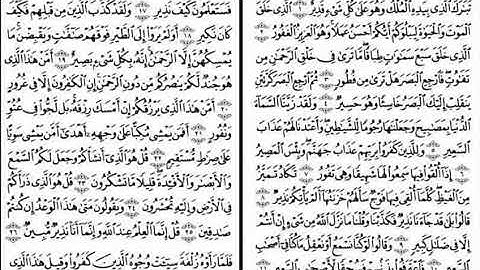 تَبَٰرَكَ ٱلَّذِى بِيَدِهِ ٱلْمُلْكُ وَهُوَ عَلَىٰ كُلِّ شَىْءٍ قَدِيرٌ ١ ٱلَّذِى خَلَقَ
ٱلْمَوْتَ وَٱلْحَيَوٰةَ لِيَبْلُوَكُمْ أَيُّكُمْ أَحْسَنُ عَمَلًا وَهُوَ ٱلْعَزِيزُ ٱلْغَفُورُ ٢
ٱلَّذِى خَلَقَ سَبْعَ سَمَٰوَٰتٍ طِبَاقًا مَّا تَرَىٰ فِى خَلْقِ ٱلرَّحْمَٰنِ مِن
تَفَٰوُتٍ فَٱرْجِعِ ٱلْبَصَرَ هَلْ تَرَىٰ مِن فُطُورٍ ٣ ثُمَّ ٱرْجِعِ ٱلْبَصَرَ كَرَّتَيْنِ
يَنقَلِبْ إِلَيْكَ ٱلْبَصَرُ خَاسِئًا وَهُوَ حَسِيرٌ ٤ وَلَقَدْ زَيَّنَّا ٱلسَّمَآءَ
ٱلدُّنْيَا بِمَصَٰبِيحَ وَجَعَلْنَٰهَا رُجُومًا لِّلشَّيَٰطِينِ وَأَعْتَدْنَا لَهُمْ عَذَابَ
ٱلسَّعِيرِ ٥ وَلِلَّذِينَ كَفَرُوا۟ بِرَبِّهِمْ عَذَابُ جَهَنَّمَ وَبِئْسَ ٱلْمَصِيرُ
٦ إِذَآ أُلْقُوا۟ فِيهَا سَمِعُوا۟ لَهَا شَهِيقًا وَهِىَ تَفُورُ ٧ تَكَادُ تَمَيَّزُ
مِنَ ٱلْغَيْظِ كُلَّمَآ أُلْقِىَ فِيهَا فَوْجٌ سَأَلَهُمْ خَزَنَتُهَآ أَلَمْ يَأْتِكُمْ نَذِيرٌ ٨
قَالُوا۟ بَلَىٰ قَدْ جَآءَنَا نَذِيرٌ فَكَذَّبْنَا وَقُلْنَا مَا نَزَّلَ ٱللَّهُ مِن شَىْءٍ إِنْ أَنتُمْ
إِلَّا فِى ضَلَٰلٍ كَبِيرٍ ٩ وَقَالُوا۟ لَوْ كُنَّا نَسْمَعُ أَوْ نَعْقِلُ مَا كُنَّا فِىٓ أَصْحَٰبِ
فَسَتَعْلَمُونَ كَيْفَ نَذِيرِ ١٧ وَلَقَدْ كَذَّبَ ٱلَّذِينَ مِن قَبْلِهِمْ فَكَيْفَ
كَانَ نَكِيرِ ١٨ أَوَلَمْ يَرَوْا۟ إِلَى ٱلطَّيْرِ فَوْقَهُمْ صَٰٓفَّٰتٍ وَيَقْبِضْنَ مَا
يُمْسِكُهُنَّ إِلَّا ٱلرَّحْمَٰنُ إِنَّهُۥ بِكُلِّ شَىْءٍۭ بَصِيرٌ ١٩ أَمَّنْ هَٰذَا ٱلَّذِى
هُوَ جُندٌ لَّكُمْ يَنصُرُكُم مِّن دُونِ ٱلرَّحْمَٰنِ إِنِ ٱلْكَٰفِرُونَ إِلَّا فِى غُرُورٍ
٢٠ أَمَّنْ هَٰذَا ٱلَّذِى يَرْزُقُكُمْ إِنْ أَمْسَكَ رِزْقَهُۥ بَل لَّجُّوا۟ فِى عُتُوٍّ
وَنُفُورٍ ٢١ أَفَمَن يَمْشِى مُكِبًّا عَلَىٰ وَجْهِهِۦٓ أَهْدَىٰٓ أَمَّن يَمْشِى سَوِيًّا
عَلَىٰ صِرَٰطٍ مُّسْتَقِيمٍ ٢٢ قُلْ هُوَ ٱلَّذِىٓ أَنشَأَكُمْ وَجَعَلَ لَكُمُ ٱلسَّمْعَ
وَٱلْأَبْصَٰرَ وَٱلْأَفْـِٔدَةَ قَلِيلًا مَّا تَشْكُرُونَ ٢٣ قُلْ هُوَ ٱلَّذِى ذَرَأَكُمْ
فِى ٱلْأَرْضِ وَإِلَيْهِ تُحْشَرُونَ ٢٤ وَيَقُولُونَ مَتَىٰ هَٰذَا ٱلْوَعْدُ إِن كُنتُمْ
صَٰدِقِينَ ٢٥ قُلْ إِنَّمَا ٱلْعِلْمُ عِندَ ٱللَّهِ وَإِنَّمَآ أَنَا۠ نَذِيرٌ مُّبِينٌ ٢٦
فَلَمَّا رَأَوْهُ زُلْفَةً سِيٓـَٔتْ وُجُوهُ ٱلَّذِينَ كَفَرُوا۟ وَقِيلَ هَٰذَا ٱلَّذِى